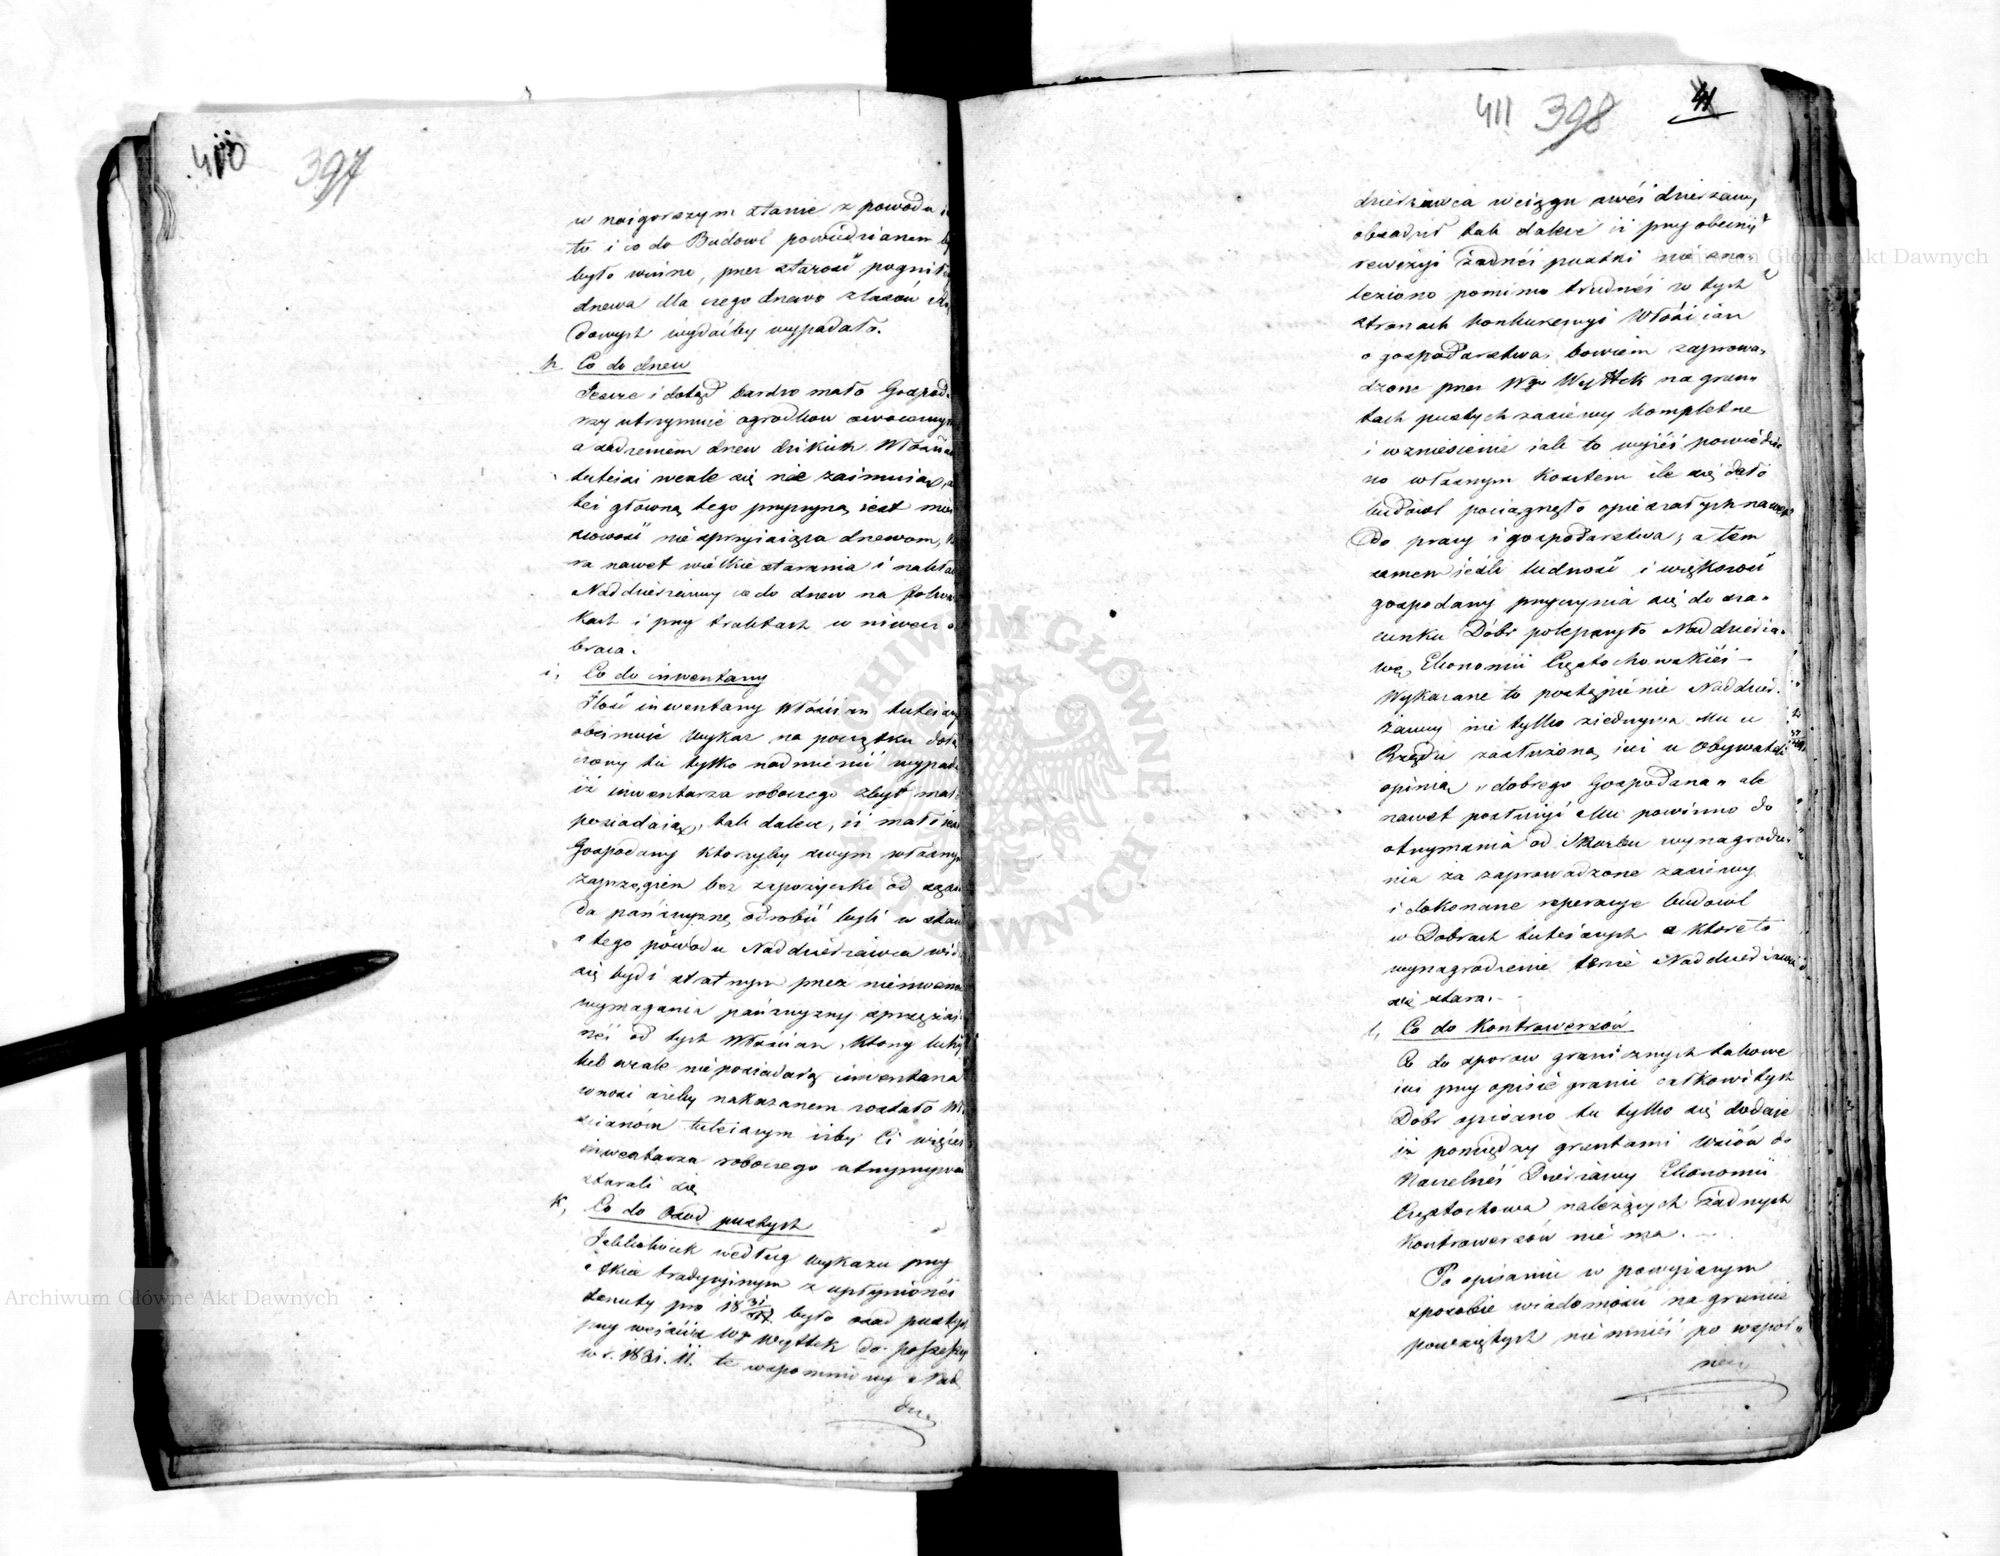 410
397
w naigorszym stanie z powodu i
to i co do Budowl powiedzianem
było winno, przez starość pogniłe
drzewa dla czego drzewo z lasów
dowych wydaćby wypadało.
h. Co do drzew
Jeszcze i dotąd bardzo mało Gospod
rzy utrzymuie ogrodków owocowych
a sadzeniem drzew dzikich Włościan
tuteisi wcale się nie zaimuią, a
też główną tego przyczyną iest miey
scowość nie sprzyiaiąca drzewom,
ra nawet wielkie starania i nakład
Naddzierżawcy co do drzew na folwar
kach i przy traktach w niwecz o
braca.
i, Co do inwentarzy
Ilość inwentarzy Włościan tuteiszych
obeimuie wykaz na początku dołą
czony tu tylko nadmienić wypada
iż inwentarza roboczego zbyt mało
posiadaią, tak dalece, iż mało iest
Gospodarzy którzyby swym własnym
zaprzęgiem bez zapożyczki od sąsia
da pańszczyznę odrobić byli w stanie
z tego powodu Naddzierżawca widzi
się bydź stratnym przez niemożność
wymagania pańszczyzny sprzężai
néi od tych Włościan którzy lichy
lub wcale nieposiadaią inwentarza
wnosi ażeby nakazanem zostało Wło
ścianom tuteiszym iżby Ci więcéi
inwentarza roboczego utrzymywać
starali się
k, Co do Osad pustych
Jakkolwiek według wykazu przy
Akcie tradycyinym z upłynionéi
tenuty pro 18 było osad pustych
przy weiściu Wgo Wyttek do possessyi
w r. 1831. 11. te wspomniony Nad
dzie
411 398 41
dzierżawca w ciągu swéi dzierżawy
obsadził tak dalece iż przy obecnéi
rewizyi żadnéi pustki nie zna„
leziono pomimo trudnéi w tych
stronach konkurencyi Włościan
o gospodarstwa, bowiem zaprowa„
dzone przez Wgo Wyttek na grun„
tach pustych zasiewy kompletne
i wzniesienie iak to wyżéi powiedzia
no własnym kosztem ile się dało
budowl pociągnęło opieszałych nawet
do pracy i gospodarstwa, a tem
samem ieżli ludność i większość
gospodarzy przyczynia się do sza„
cunku Dóbr polepszyło Naddzierża„
wę Ekonomii Częstochowskiéi –
Wykazane to postąpienie Naddzier„
żawcy nie tylko ziednywa Mu u
Rządu zasłużoną iuż u Obywateli
opinią „dobrego Gospodarza” ale
nawet posłużyć Mu powinno do
otrzymania od Skarbu wynagrodze„
nia za zaprowadzone zasiewy
i dokonane reperacye budowl
w Dobrach tuteiszych o które to
wynagrodzenie tenże Naddzierżawca
się stara. –
l, Co do Kontrowersów
Co do sporów granicznych takowe
iuż przy opisie granic całkowitych
Dóbr opisano tu tylko się dodaie
iż pomiędzy gruntami Wsiów do
Naczelnéi Dzierżawy Ekonomii
Częstochowa należących żadnych
Kontrowersów nie ma. –
Po opisaniu w powyższym
sposobie wiadomości na gruncie
powziętych niemniéi po wspol„
nem
Archiwum Główne Akt Dawnych
Archiwum Główne Akt Dawnych
ARCHIWUM GŁÓWNE AKT DAWNYCH